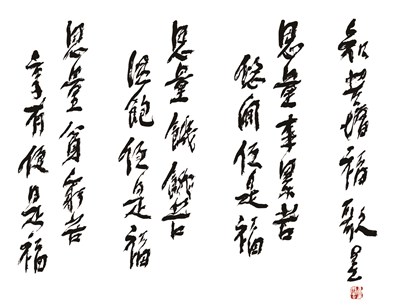 知苦惜福
思量事累苦
悠閒便是福
思量饑餓苦
溫飽便是福
思量貧窮苦
有便是福